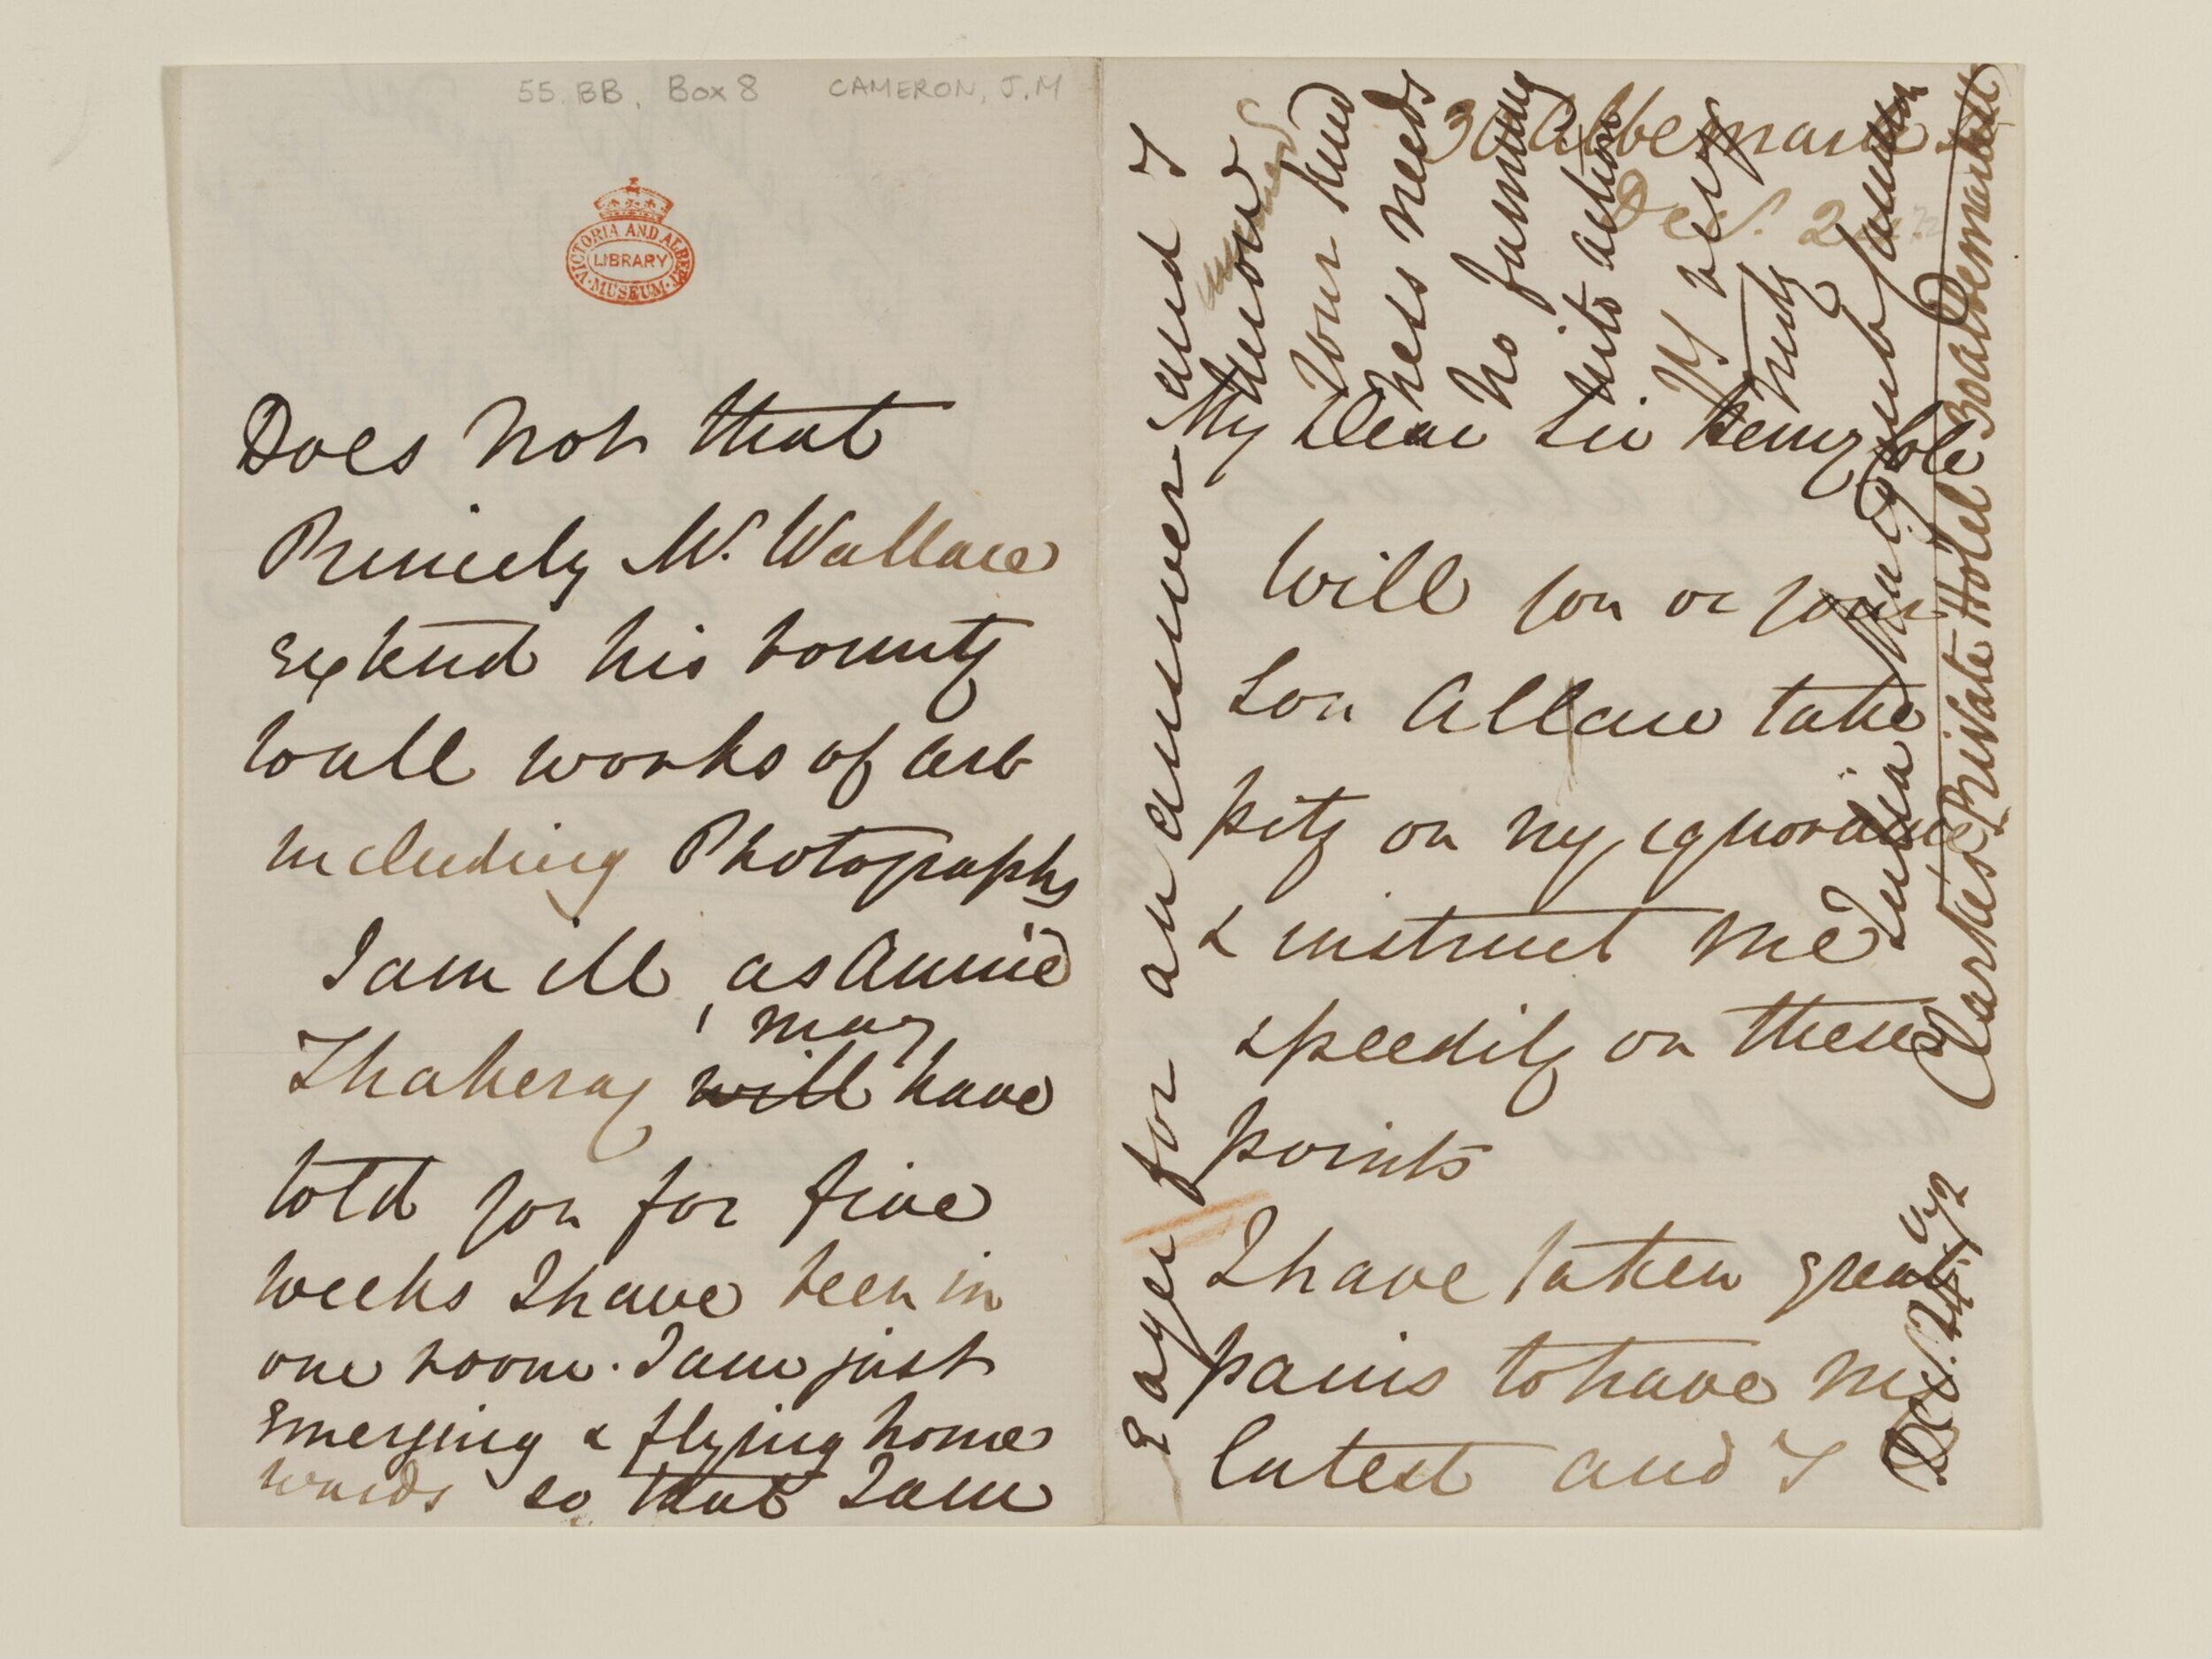 55.BB. Box 8 CAMERON, J.M
VICTORIA AND ALBERT
LIBRARY
MUSEUM
Does not that
Princely Mr. Wallace
extend his bounty
to all works of art
including Photographs
I am ill, as Annie
may
Thakeray will have
told you for five
weeks I have been in
one room. I am just
emerging & flying home
wards so that I am
3 Albemarle St
Dec. 24.
My dear Sir Henry Cole
Will you or your
Son Allan take
pity on my ignorance
& instruct me
speedily on these
points
I have taken great
pains to have my
latest and I
eager for an answer and I
know
your kind
ness needs
no fanning
into action
Yrs very
truly
Julia Margaret Cameron
Clarkes Private Hotel 3 Albemarle St
Dec. 24. /72